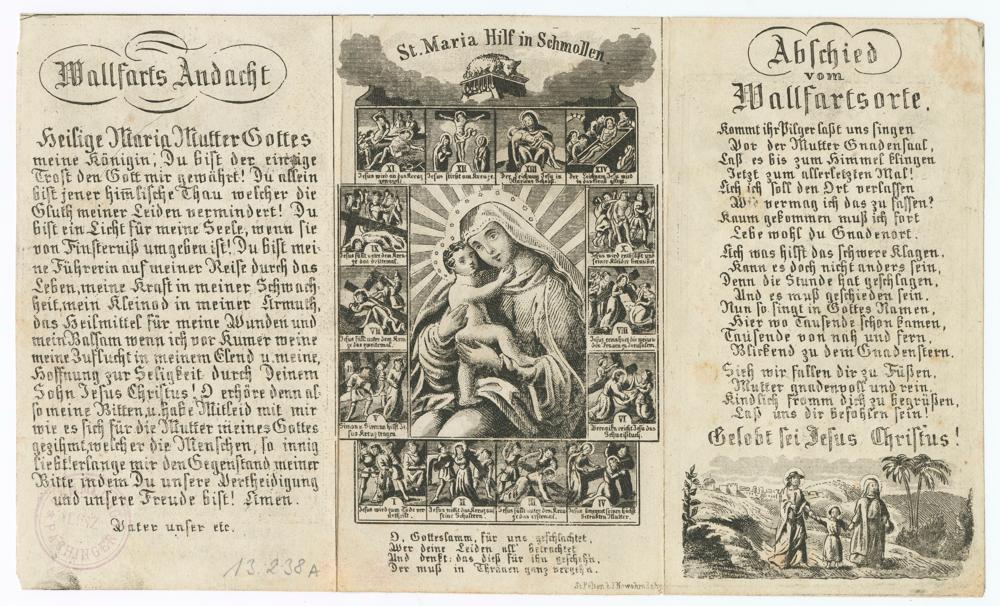 Wallfarts Andacht
Heilige Maria Mutter Gottes
meine Königin, Du bist der einzige
Trost den Gott mir gewährt! Du allein
bist jener him̄lische Thau welcher die
Gluth meiner Leiden vermindert! Du
bist ein Licht für meine Seele, wenn sie
von Finsterniß umgeben ist! Du bist mei-
ne Führerin auf meiner Reise durch das
Leben, meine Kraft in meiner Schwach-
heit, mein Kleinod in meiner Armuth,
das Heilmittel für meine Wunden und
mein Balsam wenn ich vor Kumer weine
meine Zuflucht in meinem Elend u. meine
Hoffnung zur Seligkeit durch Deinem
Sohn Jesus Christus! O erhöre denn al-
so meine Bitten, u. habe Mitleid mit mir
wie es sich für die Mutter meines Gottes
geziehmt, welcher die Menschen, so innig
liebt! erlange mir den Gegenstand meiner
Bitte indem Du unsere Vertheidigung
und unsere Freude bist! Amen.
Vater unser etc.
13.238A
St. Maria Hilf in Schmollen.
XI
XII
XIII
XIV
Jesus wird an das Kreuz
genagelt.
Jesus stirbt am Kreuze.
Der Leichnam Jesu in
Mariens Schoß.
Der Leichnam Jesu wird
in das Grab gelegt.
IX
Jesus fällt unter dem Kreu-
ze das drittemal.
X
Jesus wird entblößt und
seiner Kleider beraubet.
VII
Jesus fällt unter dem Kreu-
ze das zweitemal.
VIII
Jesus
den Frauen zu Jerusalem.
V
Simon v. Sirene hilft Je-
sus Kreuz tragen.
VI
reicht Jesu das
Schweißtuch.
I
II
III
IV
Jesus wird zum Tode ver-
urtheilt.
Jesus nim̄t das Kreuz auf
seine Schultern.
Jesus fällt unter dem Kreuz-
e das erstemal.
Jesus begegnet seiner höchst
betrübten Mutter.
O, Gotteslamm, für uns geschlachtet,
Wer deine Leiden all' betrachtet
Und denkt: das dieß für ihn geschehn,
Der muß in Thränen ganz vergehn.
St. Pölten b. J. Nowohradsky
Abschied
vom
Wallfartsorte.
Kommt ihr Pilger laßt uns singen
Vor der Mutter Gnadensaal,
Laß es bis zum Himmel klingen
Jetzt zum allerletzten Mal!
Ach ich soll den Ort verlassen
Wie vermag ich das zu fassen?
Kaum gekommen muß ich fort
Lebe wohl du Gnadenort.
Ach was hilft das schwere Klagen,
Kann es doch nicht anders sein,
Denn die Stunde hat geschlagen,
Und es muß geschieden sein.
Nun so singt in Gottes Namen,
Hier wo Tausende schon kamen,
Tausende von nah und fern,
Blickend zu dem Gnadenstern.
Sieh wir fallen dir zu Füßen,
Mutter gnadenvoll und rein,
Kindlich fromm dich zu begrüßen,
Laß uns dir befohlen sein!
Gelobt sei Jesus Christus!